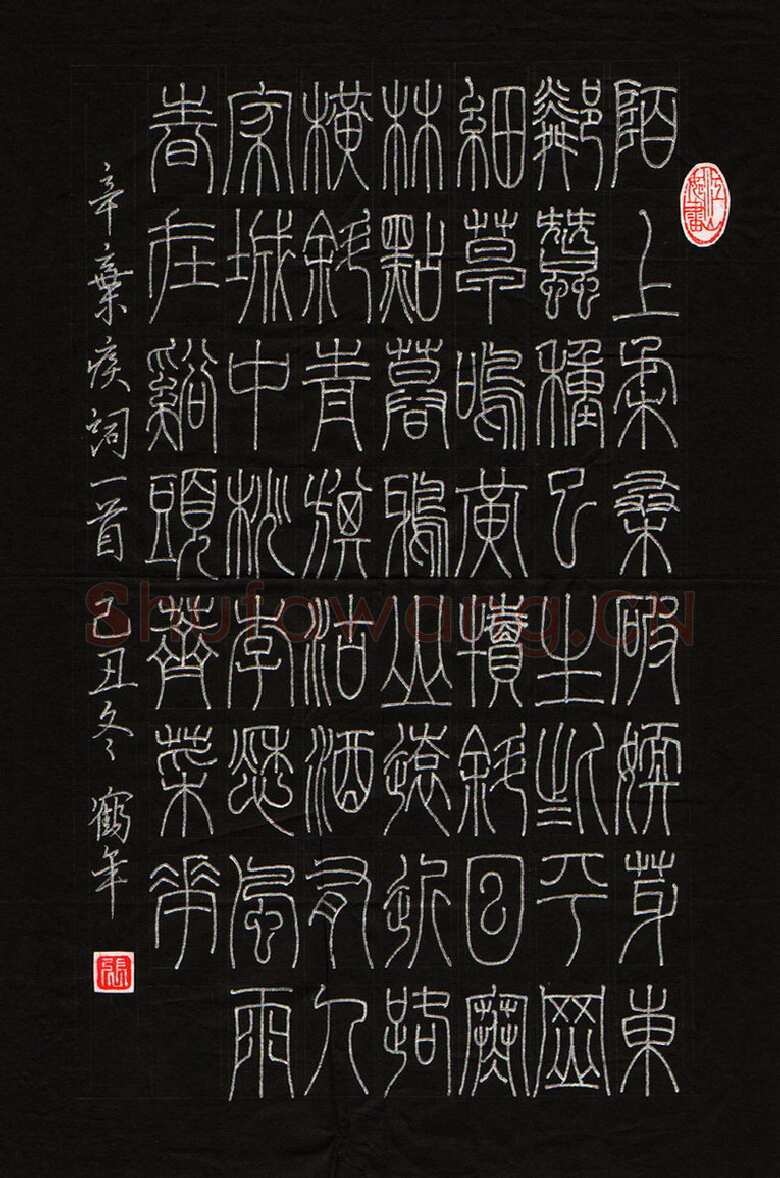 陌上柔桑破嫩芽東
鄰蠶種已生些平岡
細草鳴黃犢斜日寒
林點暮鴉山遠近路
橫斜青旗沽酒有人
家城中桃李愁風雨
春在谿頭薺菜花
辛棄疾詞一首 己丑冬 鶴年
張
Shufawang.CN